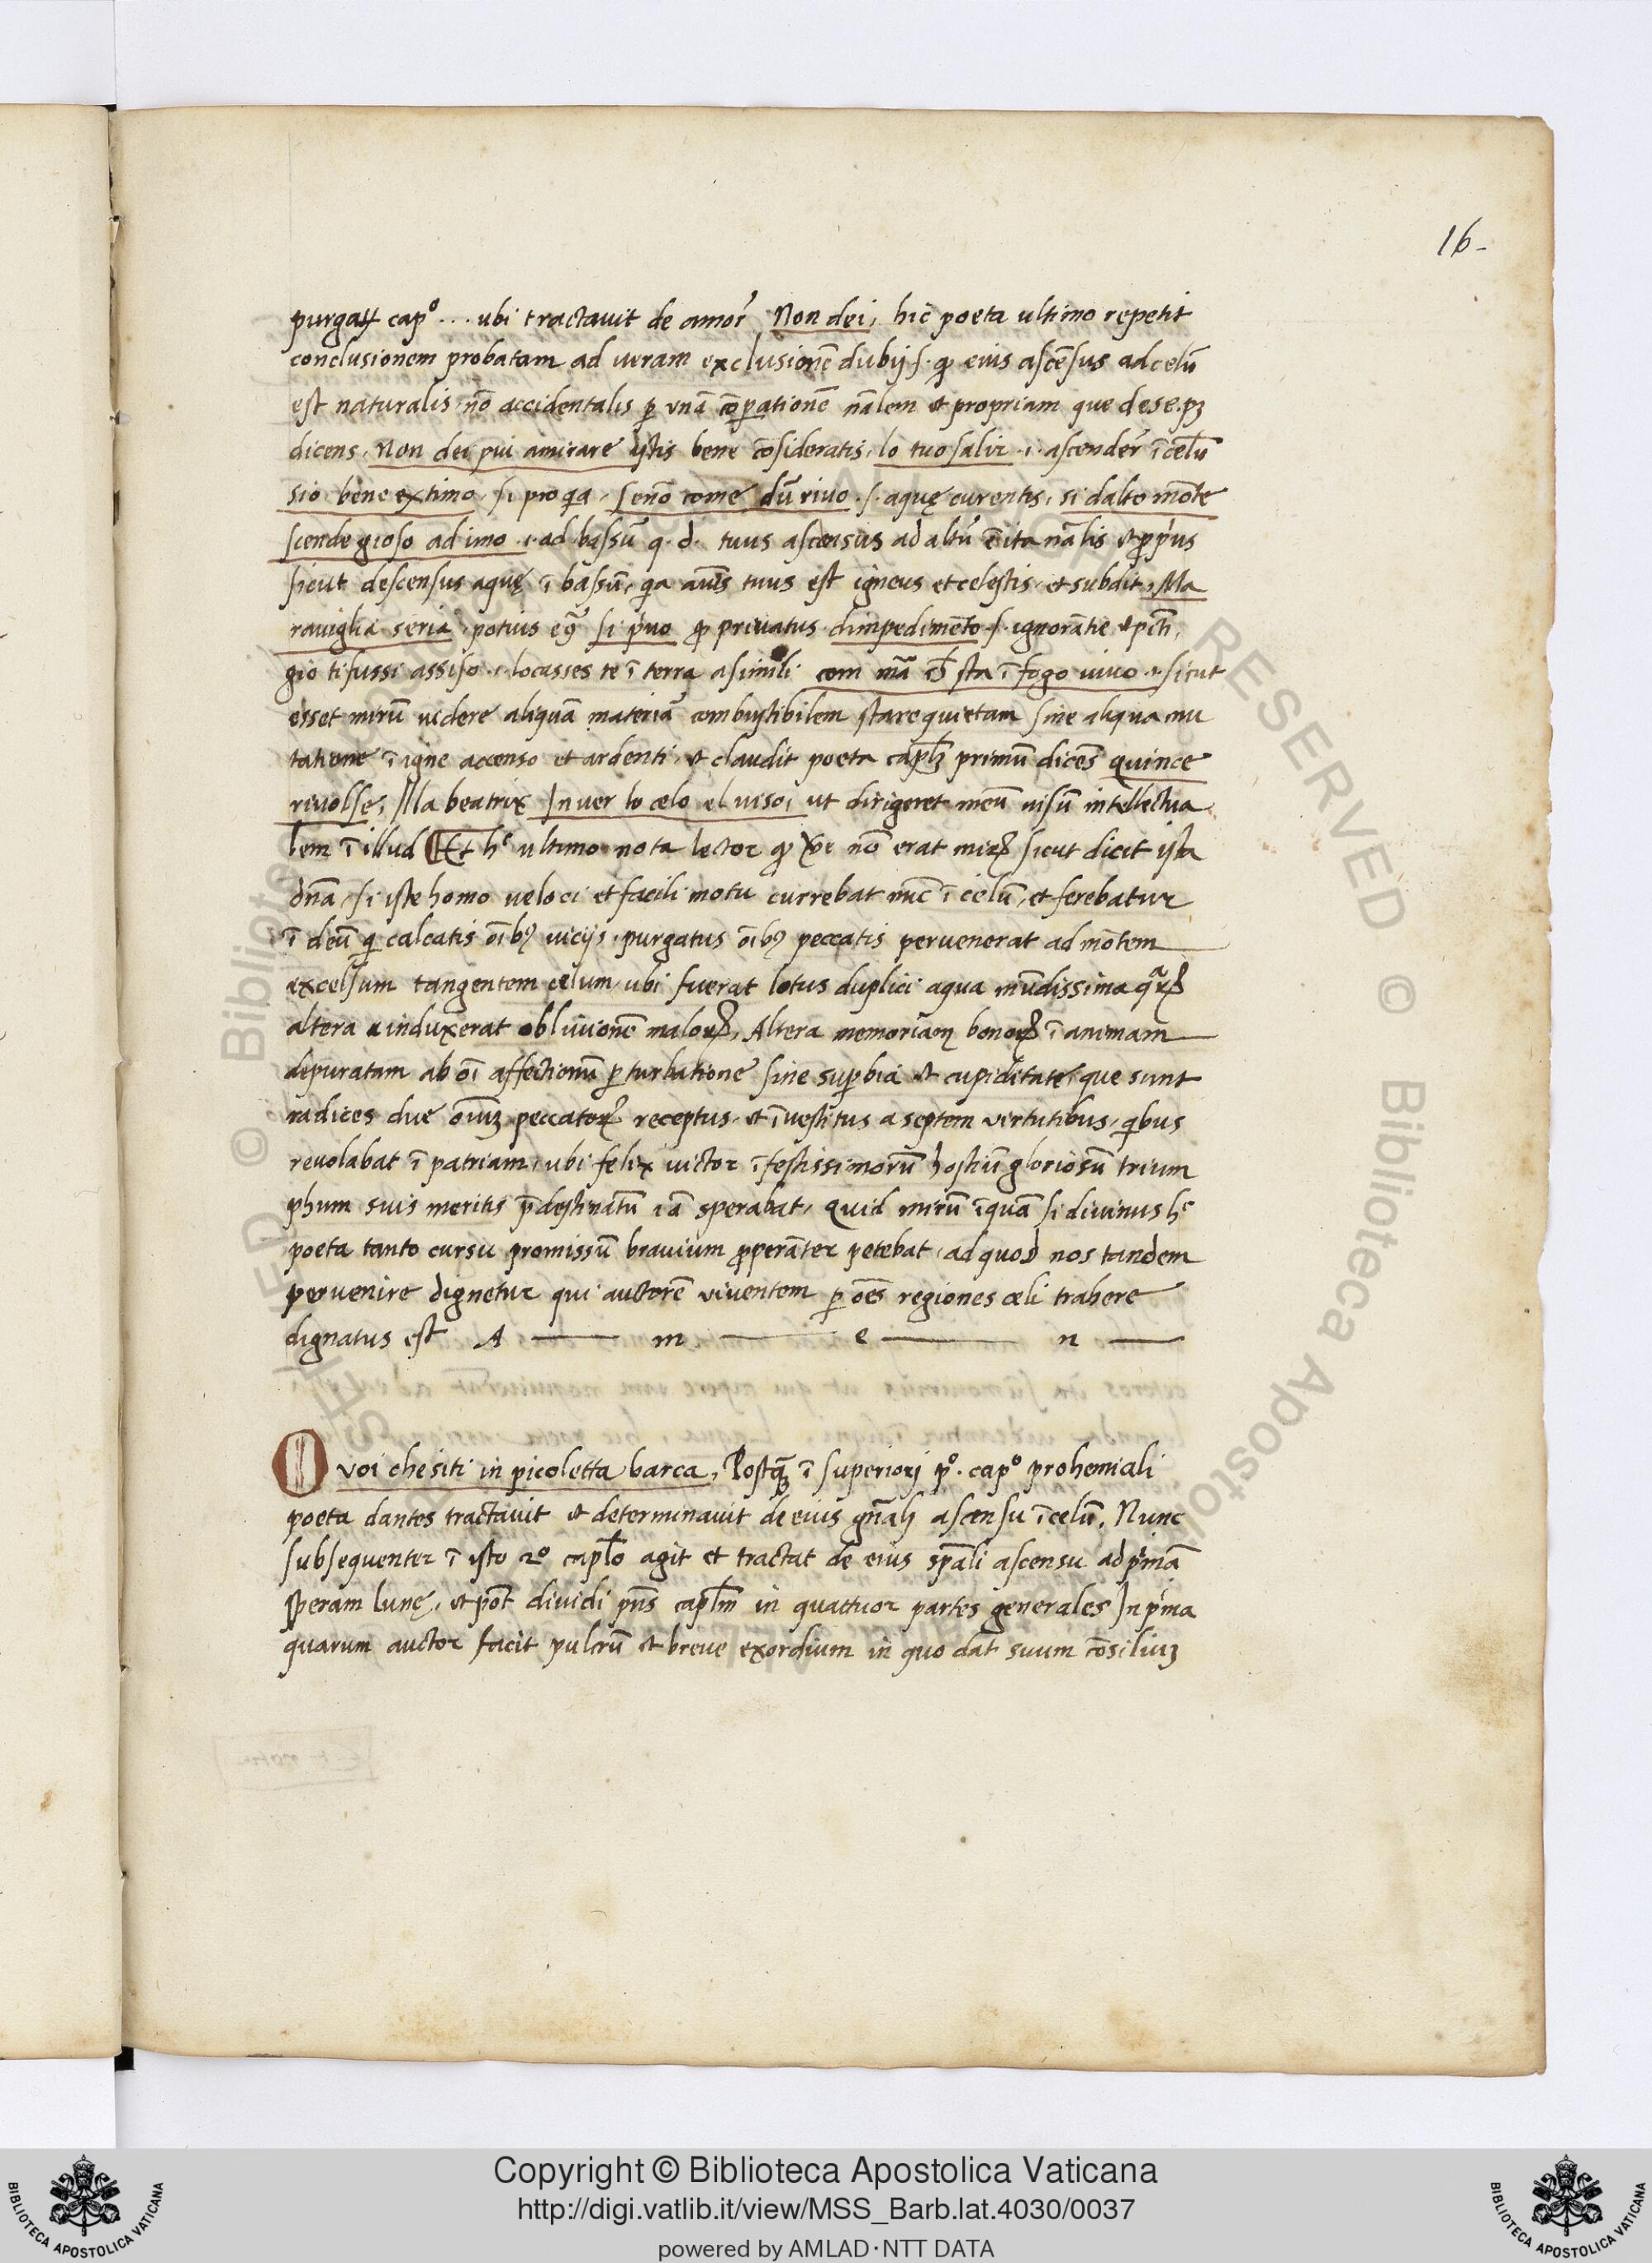 16.
purgatorij cap° ... ubi tractavit de amor̄ Non dei, hic poeta ultimo repetit
conclusionem probatam ad veram exclusionē dubij .s. ꝙ eius ascēsus ad celū
est naturalis nō accidentalis ꝑ vnā cōꝑationē nālem et propriam que de se pꝫ
dicens, Non dei pui amirare istis bene cōsideratis, lo tuo salir .i. ascender̄ ī celū
sio bene extimo, si pro qa, senō come dū rivo .s. aquę curentis, si dalto mōte
scende gioso ad imo .i. ad bassū q. d. tuus ascensus ad altū ē ita nālis et ꝓprius
sicut descensus aquę ī bassū, qa aīus tuus est igneus et celestis, et subdit, Ma
raviglia seria, potius si privo ꝙ privatus dimpedimēto .s. ignorātie et
gio ti fussi assiso .i. locasses te ī terra a simili com ī sta ī fogo vivo .i. sicut
esset mirū videre aliquā materiā combustibilem stare quietam sine aliqua mu
tatione ī igne accenso et ardenti, et claudit poeta primū dicēs quince
rivolse, Ila beatrix Inver lo celo el viso, ut dirigeret meū visū intellectua
lem ī illud Et hc ultimo nota lector ꝙ nō erat sicut dicit ista
dn̄a, si iste homo veloci et facili motu currebat nūc ī celū, et ferebatur
ī deū qi calcatis oībꝰ vicijs, purgatus oībꝰ peccatis pervenerat ad mōtem
excelsum tangentem celum, ubi fuerat lotus duplici aqua mūdissima quaꝝ
altera induxerat oblivionē maloꝝ, Altera memoriam bonoꝝ ī animam
depuratam ab oī affectionū ꝑturbatione sine suꝑbia et cupiditate, que sunt
radices due oīuꝫ peccatoꝝ receptus, et īvestitus a septem virtutibus, qibus
revolabat ī patriam, ubi felix victor īfestissimorū hostiū gloriosū trium
phum suis meritis p̄destinatū iā sperabat, Quid mirū īquā si divinus hc
poeta tanto cursu promissū bravium ꝓperāter petebat, ad quod nos tandem
pervenire dignetur qui auctorē viventem ꝑ oēs regiones celi trahere
dignatus est A — m — e — n —
O voi che siti in picoletta barca, Postqꝫ ī superiorj p°. cap° prohemiali
poeta dantes tractavit et determinavit de eius gn̄ali ascensu ī celū, Nunc
subsequenter ī isto 2° caplo agit et tractat de eius spāli ascensu ad pimā
speram lunę, et pōt dividi pn̄s caplm in quattuor partes generales In pima
quarum auctor facit pulcrū et breve exordium in quo dat suum cōsiliuꝫ
Copyright © Biblioteca Apostolica Vaticana
http://digi.vatlib.it/view/MSS_Barb.lat.4030/0037
powered by AMLAD·NTT DATA